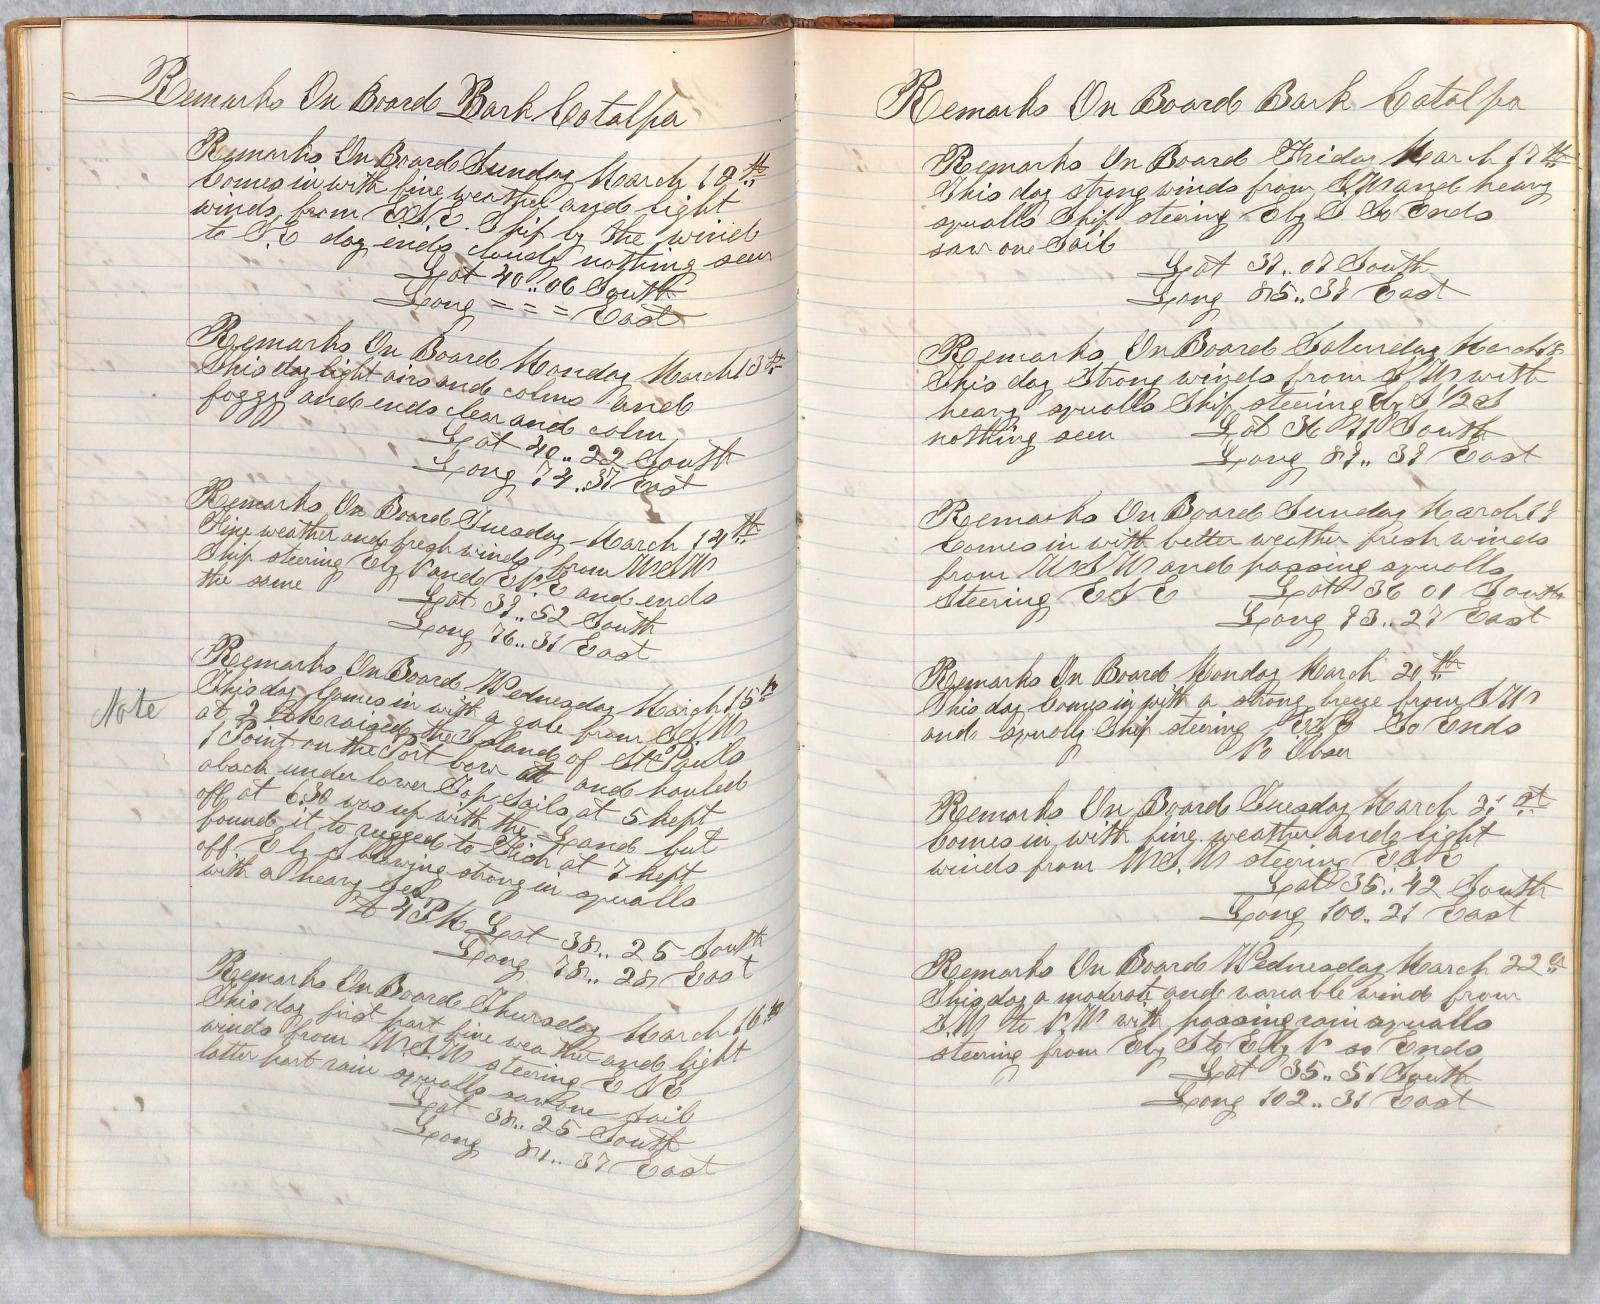 Remarks On Board Bark Catalpa
Remarks On Board Sunday March 12th
Comes in with fine weather and light
winds from ESE. Ship by the wind
to S.E day ends cloudy nothing seen
Lat 40..06 South
Long = = = East
Remarks On Board Monday March 13th
This day light airs and calms and
foggy and ends clear and calm
Lat 40..22 South
Long 74..37 East
Remarks On Board Tuesday March 14th
Fine weather and fresh winds from WSW
Ship steering E by N and ENE and ends
the same
Lat 39..52 South
Long 76..31 East
Remarks On Board Wednesday March 15th
Note
This day Comes in with a gale from SSW
at 2 raised the Island of St Pauls
1 Point on the Port bow and hauled
aback under lower Top Sails at 5 kept
off at 6.30 was up with the Land but
found it to rugged to Fish at 7 kept
off E by S blowing strong in squalls
with a heavy sea
At 4 PM Lat 38..25 South
Long 78..28 East
Remarks On Board Thursday March 16th
This day first part fine weather and light
winds from W.S.W steering ESE
latter part rain squalls saw one sail
Lat 38..25 South
Long 81..37 East
Remarks On Board Bark Catalpa
Remarks On Board Friday March 17th
This day strong winds from SW and heavy
squalls Ship steering E by S So Ends
saw one Sail
Lat 37..07 South
Long 85..39 East
Remarks On Board Saturday March 18
This day Strong winds from SW with
heavy squalls Ship steering E by S 1/2 S
nothing seen Lat 36 South
Long 89..39 East
Remarks On Board Sunday March 19
Comes in with better weather fresh winds
from WSW and passing squalls
Steering ESE Lat 36 01 South
Long 93..27 East
Remarks On Board Monday March 20th
This day Comes in with a strong breeze from SW
and squally Ship steering ESE So Ends
No Obser
Remarks On Board Tuesday March 21st
Comes in with fine weather and light
winds from W.S.W steering ESE
Lat 35..42 South
Long 100..21 East
Remarks On Board Wednesday March 22d
This day a moderate and variable wind from
S.W to N.W with passing rain squalls
steering from E by S to E by N so Ends
Lat 35..51 South
Long 102..31 East